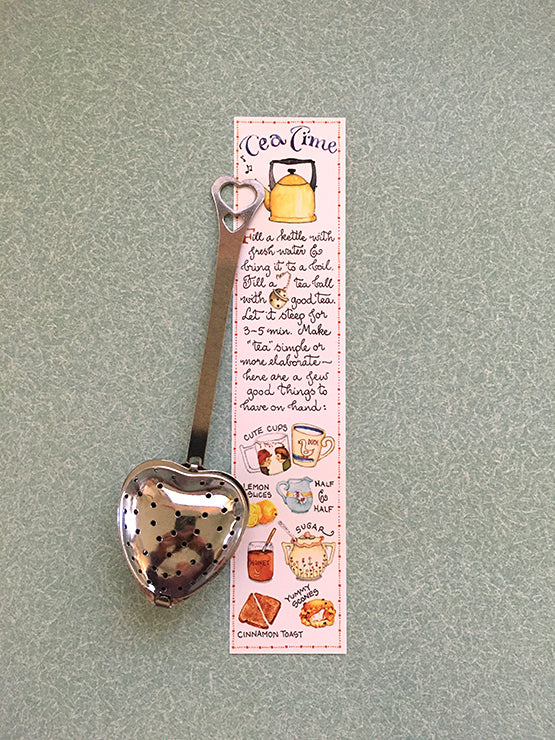 Tea Time
Fill a kettle with
fresh water &
bring it to a boil.
Fill a tea ball
with good tea.
Let it steep for
3-5 min. Make
"tea" simple or
more elaborate—
here are a few
good things to
have on hand:
CUTE CUPS
DUCK
LEMON
SLICES
HALF
&
HALF
SUGAR
HONEY
YUMMY
SCONES
CINNAMON TOAST